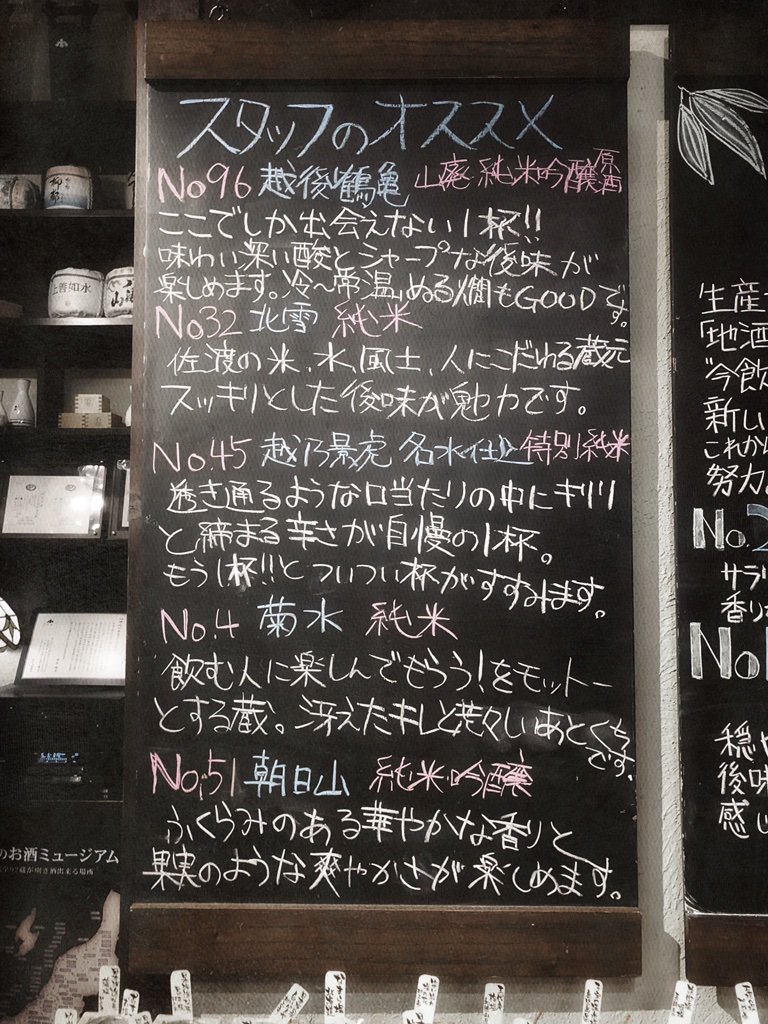 スタッフのオススメ
No96 越後鶴亀 山廃 純米吟醸 原酒
ここでしか出会えない1杯!!
味わい深い酸とシャープな後味が
楽しめます。冷〜常温、ぬる燗もGOODです。
No32 北雪 純米
佐渡の米、水、風土、人にこだわる蔵元
スッキリとした後味が魅力です。
No.45 越乃景虎 名水仕込 特別純米
透き通るような口当たりの中にキリリ
と締まる辛さが自慢の1杯。
もう1杯!!とついつい杯がすすみます。
No.4 菊水 純米
飲む人に楽しんでもらう!をモットー
とする蔵。冴えたキレと荒々しいあとくちです。
No.51 朝日山 純米吟醸
ふくらみのある華やかな香りと
果実のような爽やかさが楽しめます。
生産
「地酒
"今飲
新しい
これから
努力
No.2
サラリ
香り
No
穏や
後味
感じ
上善如水
のお酒ミュージアム